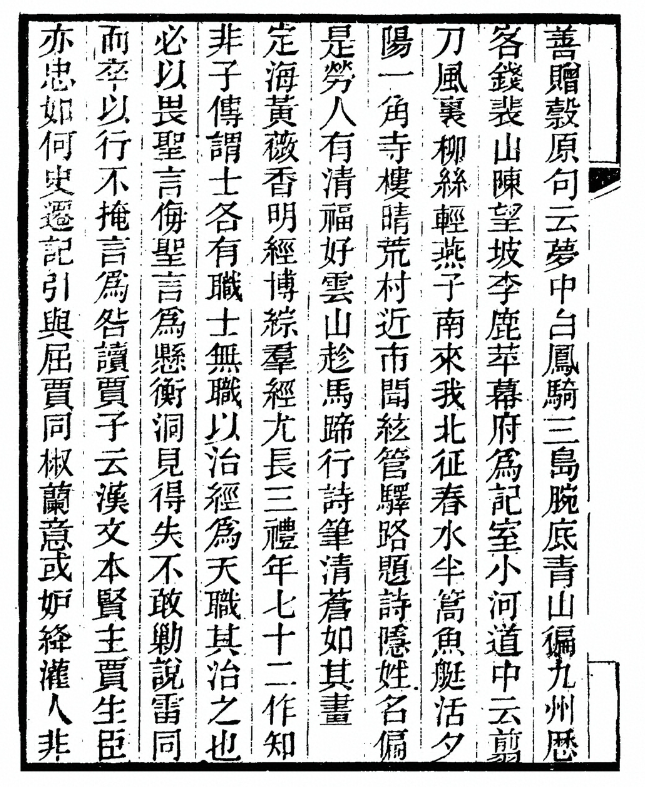 善贈穀原句云夢中白鳳騎三島腕底青山徧九州歷
客錢裴山陳望坡李鹿苹幕府爲記室小河道中云翦
刀風裏柳絲輕燕子南來我北征春水半篙魚艇活夕
陽一角寺樓晴荒村近市聞絃管驛路題詩隱姓名偏
是勞人有清福好雲山趁馬蹄行詩筆清蒼如其畫
定海黃薇香明經博綜羣經尤長三禮年七十二作知
非子傳謂士各有職士無職以治經爲天職其治之也
必以畏聖言侮聖言爲懸衡洞見得失不敢勦說雷同
而卒以行不掩言爲咎讀賈子云漢文本賢主賈生臣
亦忠如何史遷記引與屈賈同椒蘭意或妒絳灌人非